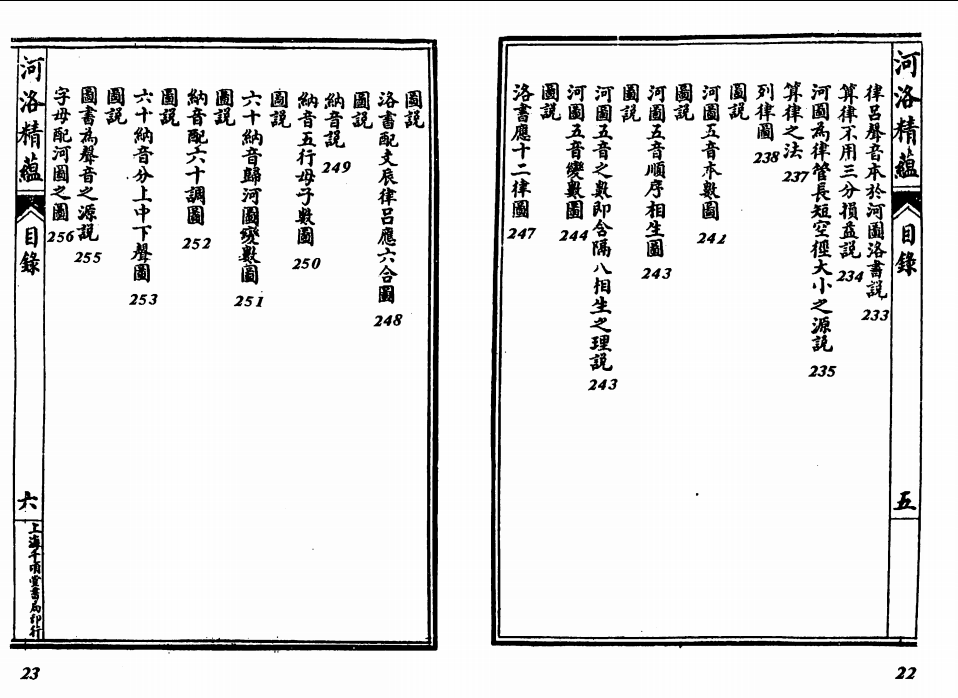 河洛精蘊
目錄
五
律呂聲音本於河圖洛書說 233
算律不用三分損益說 234
河圖為律管長短空徑大小之源說 235
算律之法 237
列律圖 238
圖說
河圖五音本數圖 242
圖說
河圖五音順序相生圖 243
圖說
河圖五音之數即含隔八相生之理說 243
河圖五音變數圖 244
圖說
洛書應十二律圖 247
22
圖說
洛書配支辰律呂應六合圖 248
圖說
納音說 249
納音五行母子數圖 250
圖說
六十納音歸河圖變數圖 251
圖說
納音配六十調圖 252
圖說
六十納音分上中下聲圖 253
圖說
圖書為聲音之源說 255
字母配河圖之圖 256
河洛精蘊
目錄
六
上海千頃堂書局印行
23